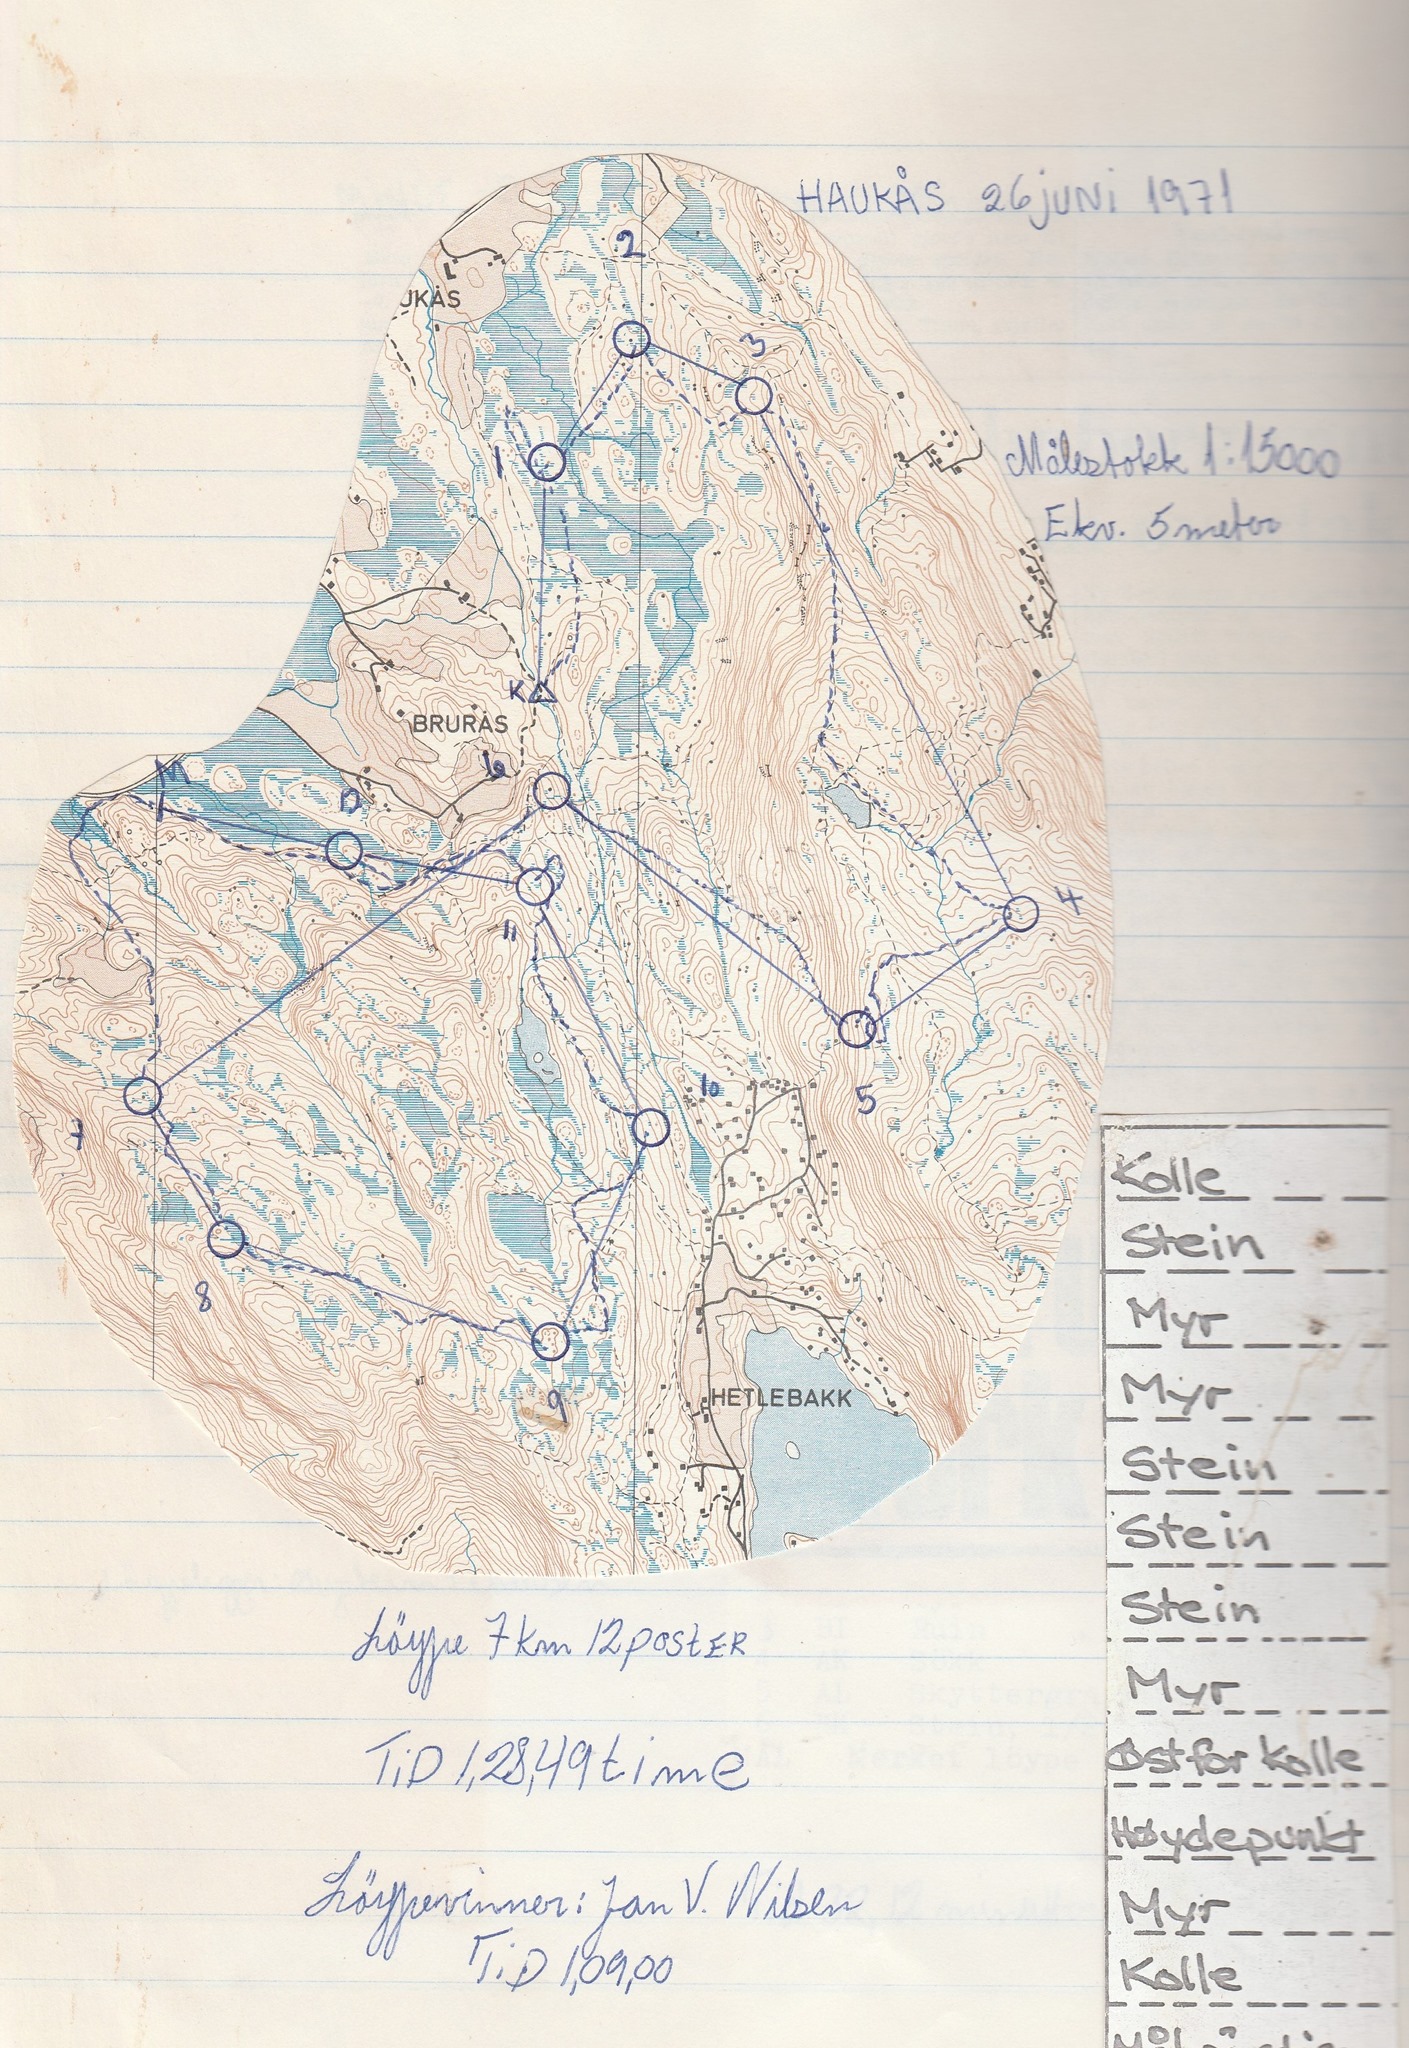 HAUKÅS 26 juni 1971
2
UKÅS
3
1
Målestokk 1:15000
Ekv. 5 meter
K
BRURÅS
6
M
12
4
11
10
5
7
8
9
HETLEBAKK
Kolle
Stein
Myr
Myr
Stein
Stein
Stein
Myr
Østfor Kolle
Høydepunkt
Myr
Kolle
Löype 7 km 12 POSTER
TiD 1,28,49 time
Löypevinner: Jan V. Nilsen
TiD 1,09,00